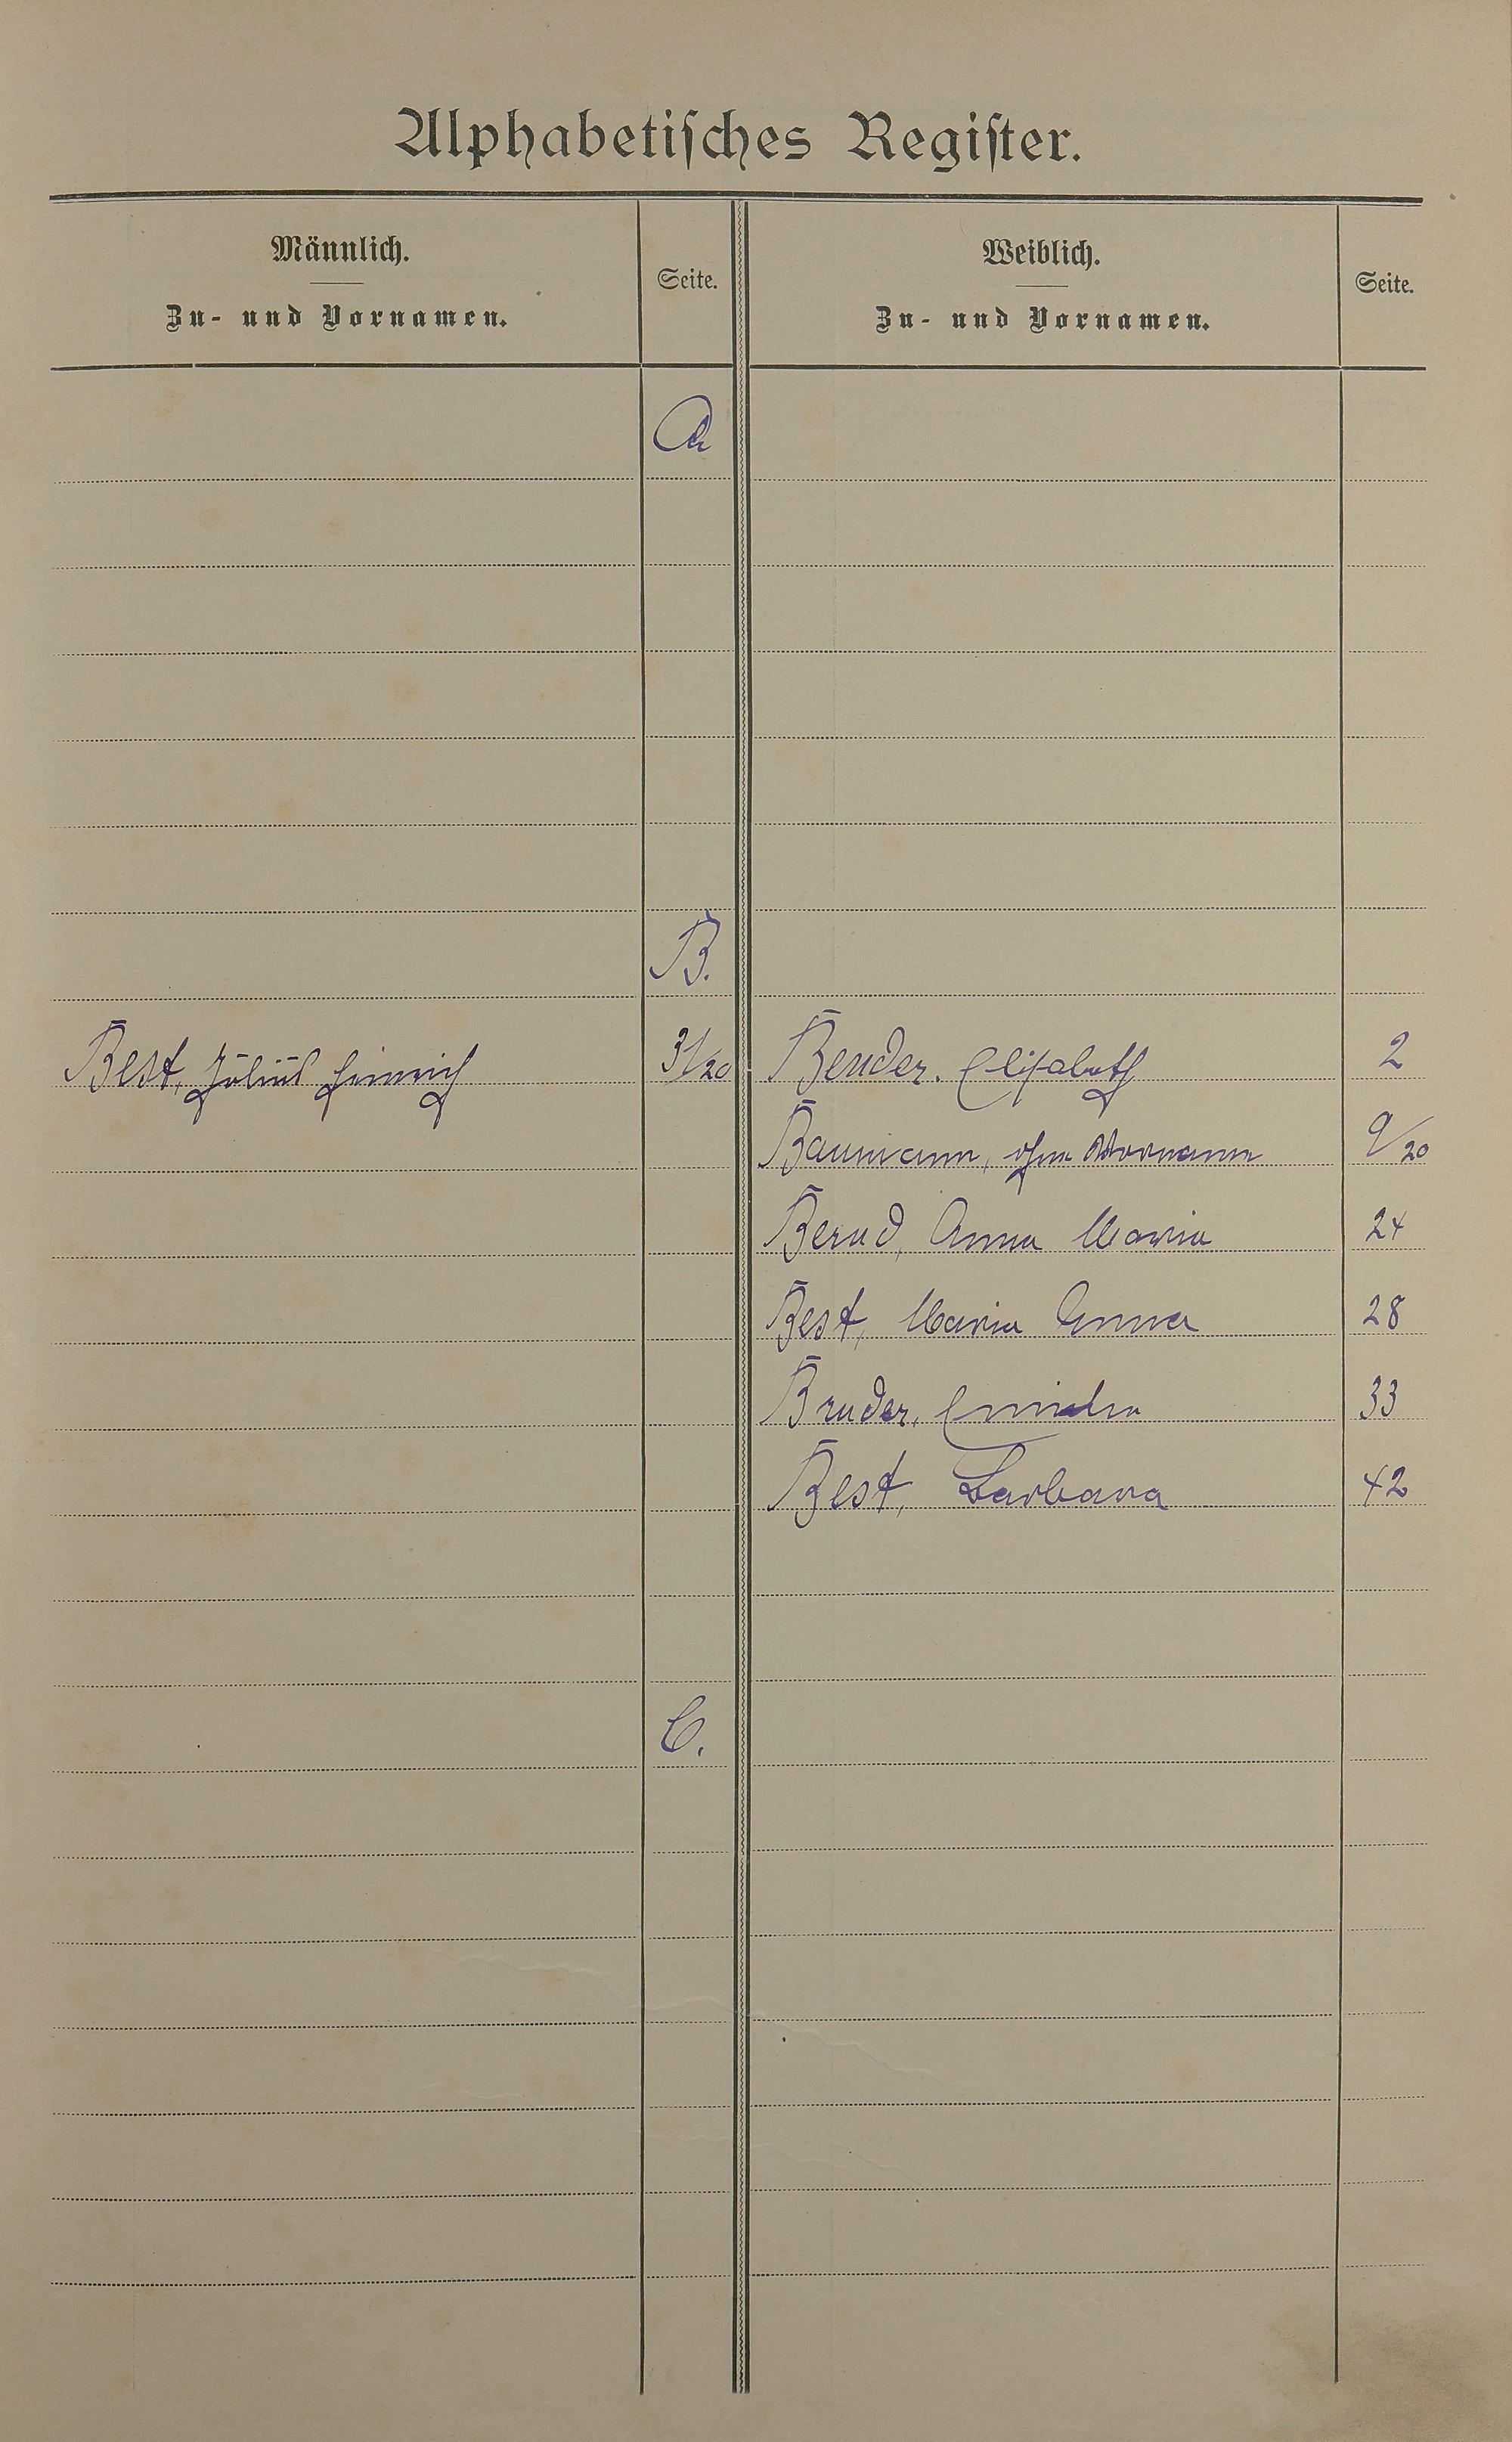 Alphabetisches Register.
Männlich. Seite. Weiblich. Seite.
Zu- und Vornamen. Zu- und Vornamen.
A
B.
Best, Julius Heinrich 31/20 Bender. Elisabeth 2
Baumann, ohne Vornamen 9/20
Bernd, Anna Maria 24
Best, Maria Anna 28
Bruder, 33
Best, Barbara 42
C.